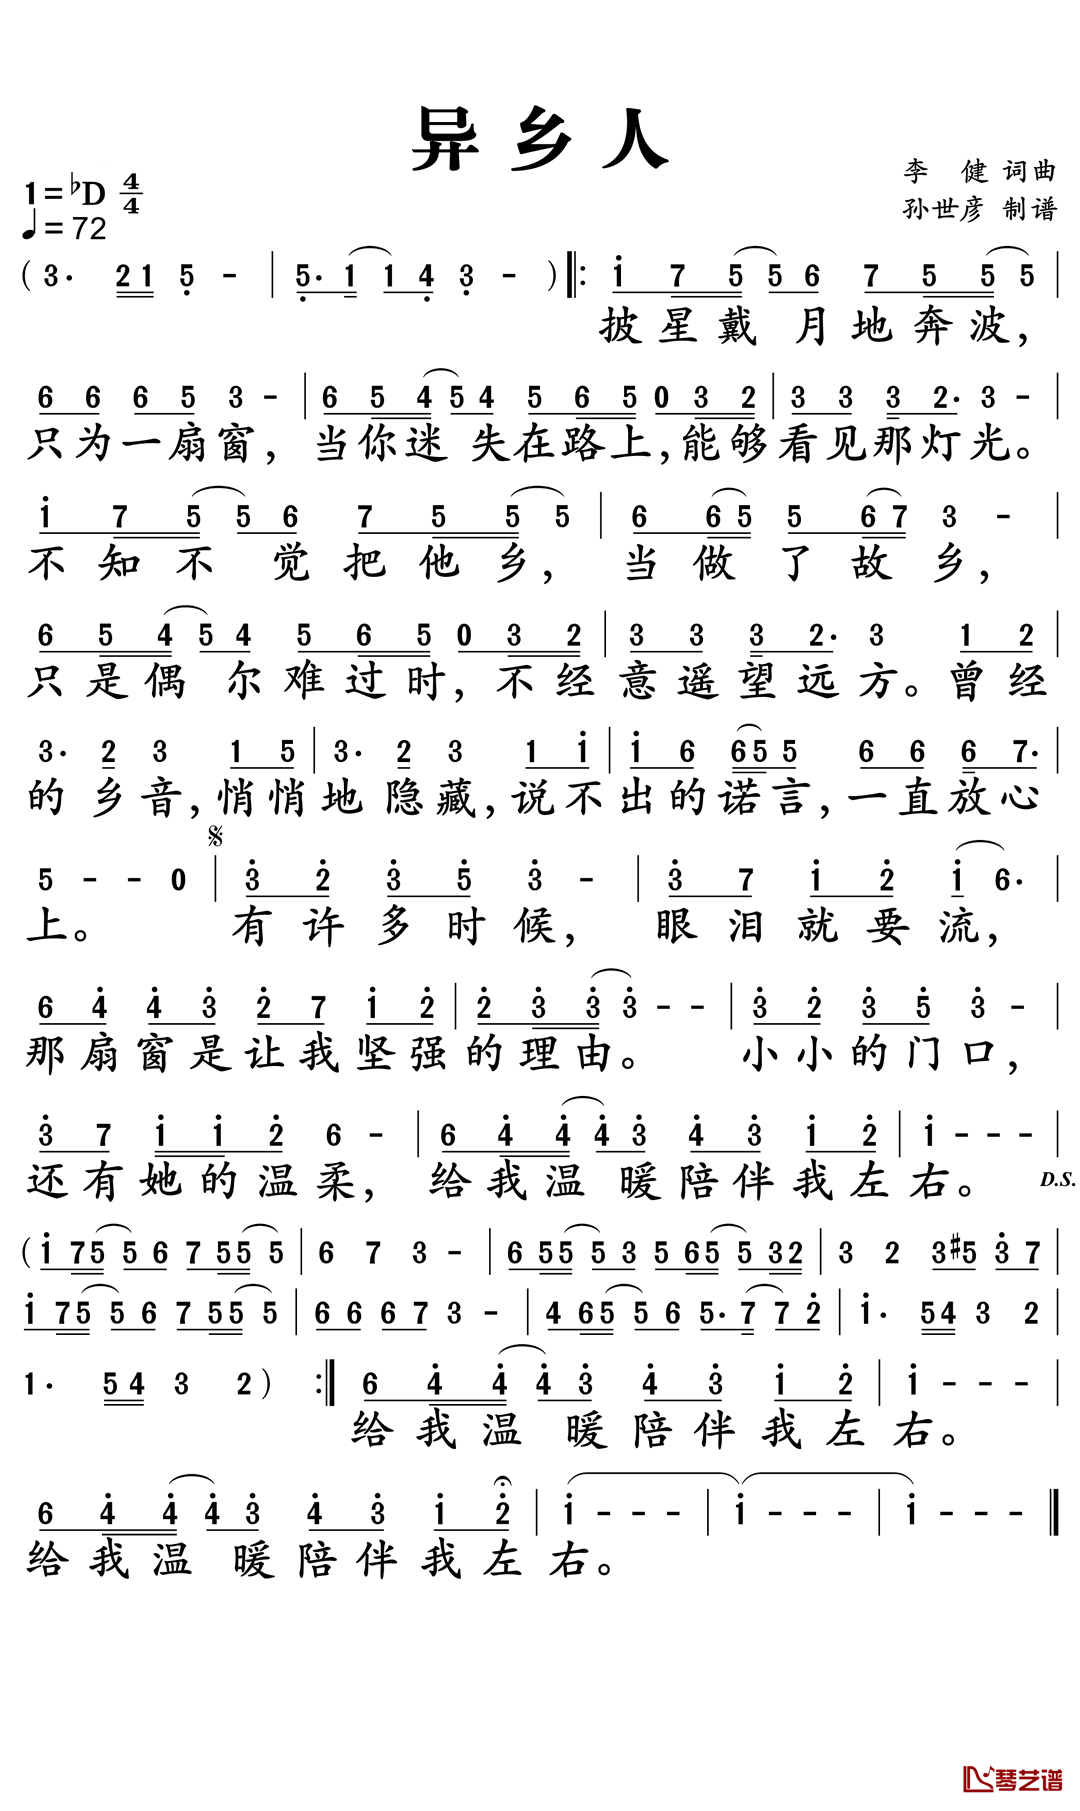 异乡人
李 健 词曲
1=♭D 4/4
孙世彦 制谱
♩=72
( 3· 2 1 5 - | 5· 1 1 4 3 - ) ‖: 1 7 5 5 6 7 5 5 5 |
披星戴月地奔波，
6 6 6 5 3 - | 6 5 4 5 4 5 6 5 0 3 2 | 3 3 3 2· 3 - |
只为一扇窗，当你迷失在路上，能够看见那灯光。
1 7 5 5 6 7 5 5 5 | 6 6 5 5 6 7 3 - |
不知不觉把他乡，当做了故乡，
6 5 4 5 4 5 6 5 0 3 2 | 3 3 3 2· 3 1 2 |
只是偶尔难过时，不经意遥望远方。曾经
3· 2 3 1 5 | 3· 2 3 1 1 | 1 6 6 5 5 6 6 6 7· |
的乡音，悄悄地隐藏，说不出的诺言，一直放心
5 - - 0 | 3 2 3 5 3 - | 3 7 1 2 1 6· |
上。有许多时候，眼泪就要流，
6 4 4 3 2 7 1 2 | 2 3 3 3 - - | 3 2 3 5 3 - |
那扇窗是让我坚强的理由。小小的门口，
3 7 1 1 2 6 - | 6 4 4 4 3 4 3 1 2 | 1 - - - |
还有她的温柔，给我温暖陪伴我左右。 D.S.
( 1 7 5 5 6 7 5 5 5 | 6 7 3 - | 6 5 5 5 3 5 6 5 5 3 2 | 3 2 3 #5 3 7 |
1 7 5 5 6 7 5 5 5 | 6 6 6 7 3 - | 4 6 5 5 6 5· 7 7 2 | 1· 5 4 3 2 |
1· 5 4 3 2 ) :‖ 6 4 4 4 3 4 3 1 2 | 1 - - - |
给我温暖陪伴我左右。
6 4 4 4 3 4 3 1 2 | 1 - - - | 1 - - - | 1 - - - ‖
给我温暖陪伴我左右。
琴艺谱